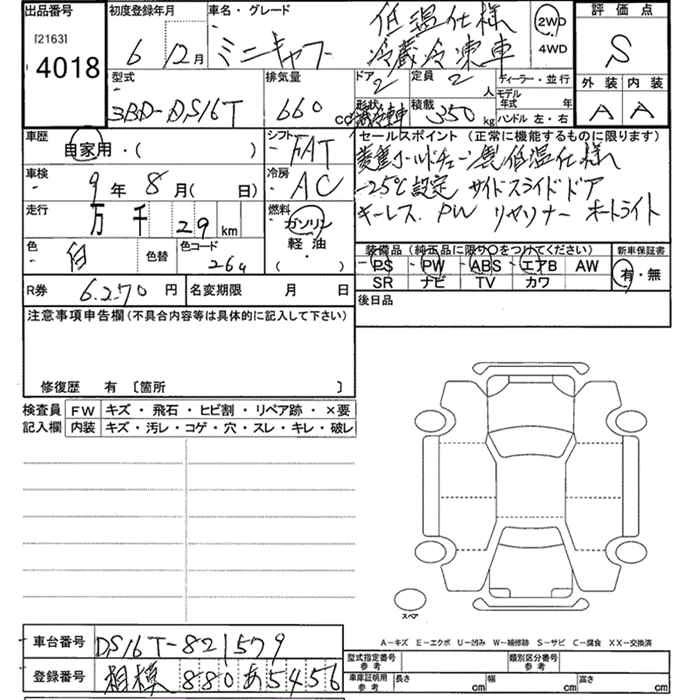 出品番号 初度登録年月 車名・グレード 評価点
[2163]
4018
6 12月
ミニキャブ
低温仕様
冷蔵冷凍車
2WD
4WD
S
型式 排気量 ドア 定員 ディーラー・並行
3BD-DS16T 660 cc
2 2 人
モデル年式 年
形状 冷凍車 積載 350 kg ハンドル 左・右
外装 内装
A A
車歴 自家用・( ) シフト FAT
セールスポイント (正常に機能するものに限ります)
菱重コールドチェーン製低温仕様
-25℃設定 サイドスライドドア
キーレス PW リヤヒーター オートライト
車検 9年 8月( 日) 冷房 AC
走行 万 千 29 km 燃料 ガソリン
軽油
( )
色 白 色替 色コード 264
装備品 (純正品に限り○をつけてください) 新車保証書
PS PW ABS エアB AW 有・無
SR ナビ TV カワ
R券 6.270 円 名変期限 月 日
後日品
注意事項申告欄 (不具合内容等は具体的に記入して下さい)
修復歴 有 [箇所 ]
検査員 FW キズ・飛石・ヒビ割・リペア跡・×要
記入欄 内装 キズ・汚レ・コゲ・穴・スレ・キレ・破レ
スペア
A-キズ E-エクボ U-凹み W-補修跡 S-サビ C-腐食 XX-交換済
車台番号 DS16T-821579
登録番号 相模 880 あ 5456
型式指定番号 参考 類別区分番号 参考
車庫証明用 参考 長さ cm 幅 cm 高さ cm